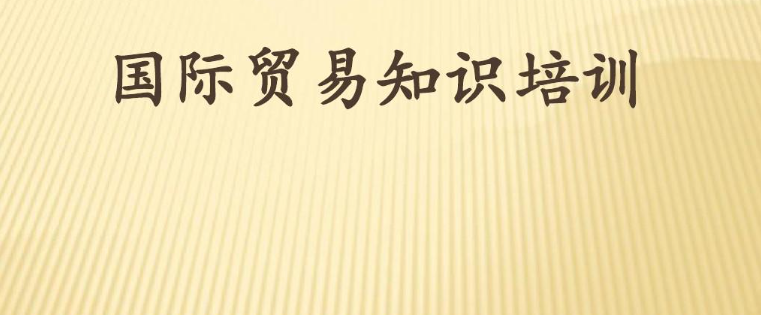 国际贸易知识培训